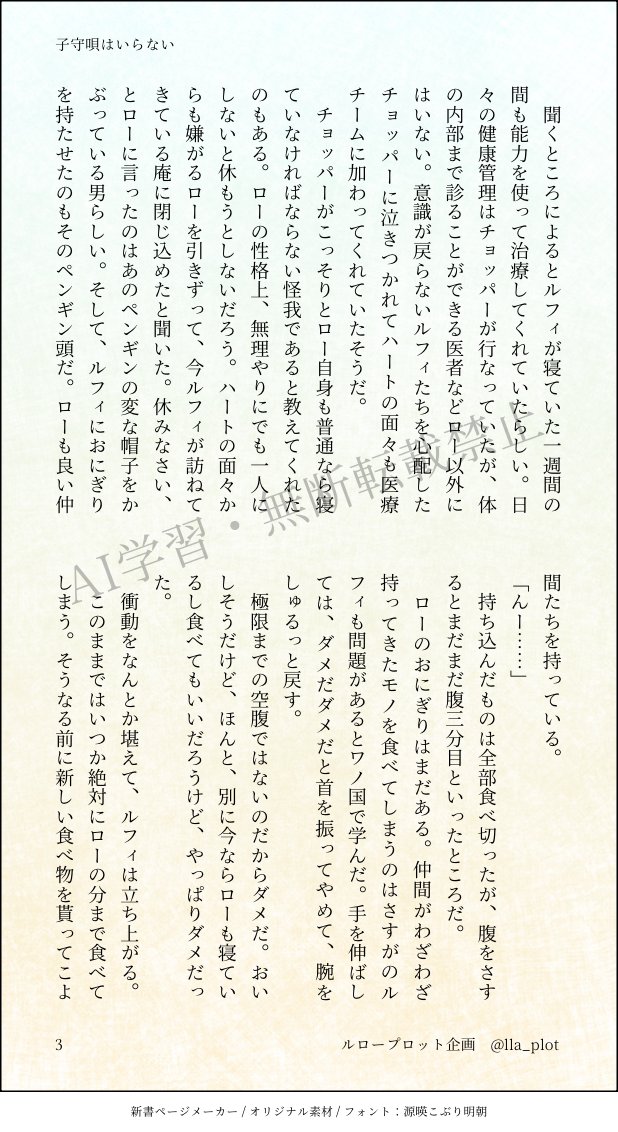 子守唄はいらない
　聞くところによるとルフィが寝ていた一週間の
間も能力を使って治療してくれていたらしい。日
々の健康管理はチョッパーが行なっていたが、体
の内部まで診ることができる医者などロー以外に
はいない。意識が戻らないルフィたちを心配した
チョッパーに泣きつかれてハートの面々も医療
チームに加わってくれていたそうだ。
　チョッパーがこっそりとロー自身も普通なら寝
ていなければならない怪我であると教えてくれた
のもある。ローの性格上、無理やりにでも一人に
しないと休もうとしないだろう。ハートの面々か
らも嫌がるローを引きずって、今ルフィが訪ねて
きている庵に閉じ込めたと聞いた。休みなさい、
とローに言ったのはあのペンギンの変な帽子をか
ぶっている男らしい。そして、ルフィにおにぎり
を持たせたのもそのペンギン頭だ。ローも良い仲
間たちを持っている。
「んー……」
　持ち込んだものは全部食べ切ったが、腹をさす
るとまだまだ腹三分目といったところだ。
　ローのおにぎりはまだある。仲間がわざわざ
持ってきたモノを食べてしまうのはさすがのル
フィも問題があるとワノ国で学んだ。手を伸ばし
ては、ダメだダメだと首を振ってやめて、腕を
しゅるっと戻す。
　極限までの空腹ではないのだからダメだ。おい
しそうだけど、ほんと、別に今ならローも寝てい
るし食べてもいいだろうけど、やっぱりダメだっ
た。
　衝動をなんとか堪えて、ルフィは立ち上がる。
　このままではいつか絶対にローの分まで食べて
しまう。そうなる前に新しい食べ物を貰ってこよ
AI学習・無断転載禁止
3
ルロープロット企画　@lla_plot
新書ページメーカー / オリジナル素材 / フォント：源暎こぶり明朝